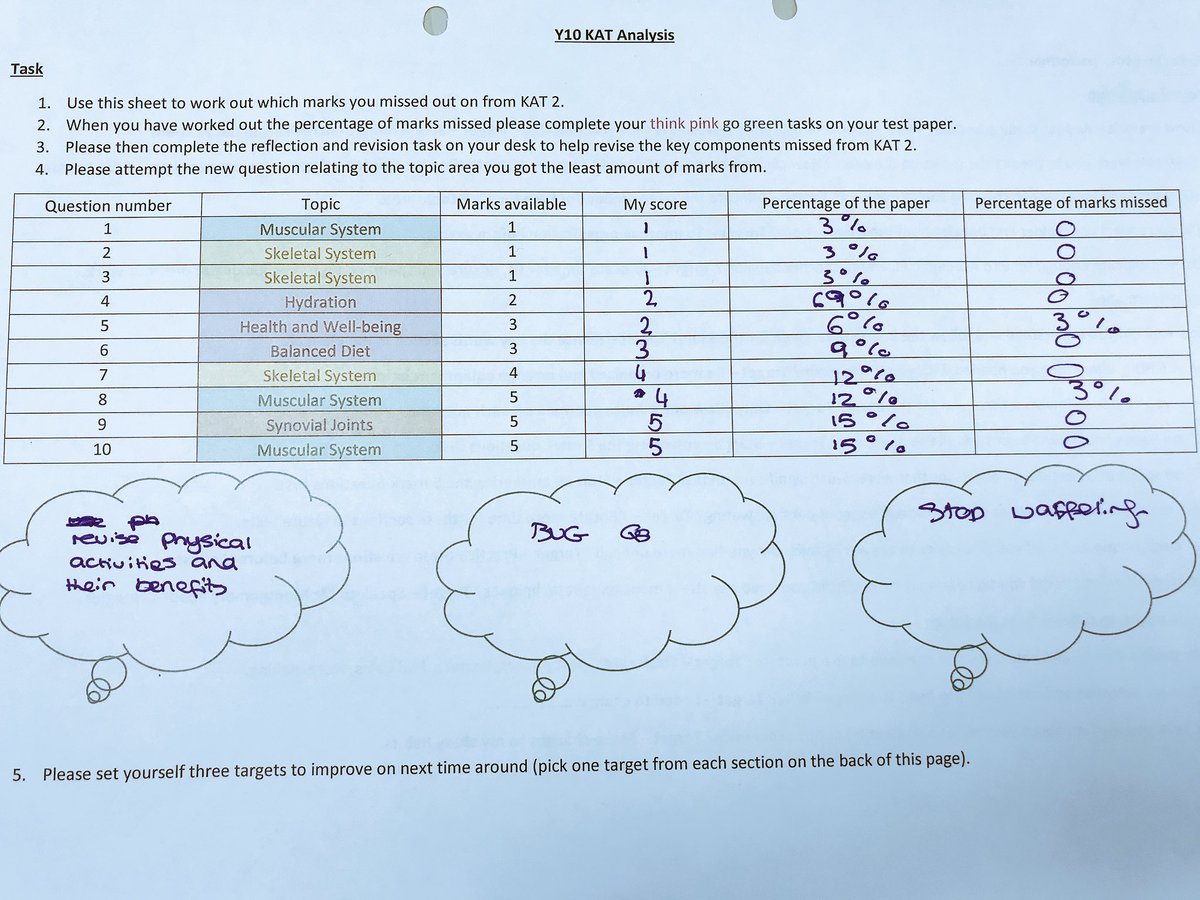 Y10 KAT Analysis
Task
1. Use this sheet to work out which marks you missed out on from KAT 2.
2. When you have worked out the percentage of marks missed please complete your think pink go green tasks on your test paper.
3. Please then complete the reflection and revision task on your desk to help revise the key components missed from KAT 2.
4. Please attempt the new question relating to the topic area you got the least amount of marks from.
Question number Topic Marks available My score Percentage of the paper Percentage of marks missed
1 Muscular System 1 1 3% 0
2 Skeletal System 1 1 3% 0
3 Skeletal System 1 1 3% 0
4 Hydration 2 2 0
5 Health and Well-being 3 2 6% 3%
6 Balanced Diet 3 3 9% 0
7 Skeletal System 4 4 12% 0
8 Muscular System 5 4 12% 3%
9 Synovial Joints 5 5 15% 0
10 Muscular System 5 5 15% 0
revise physical
activities and
their benefits
BUG GB
STOP waffeling
5. Please set yourself three targets to improve on next time around (pick one target from each section on the back of this page).